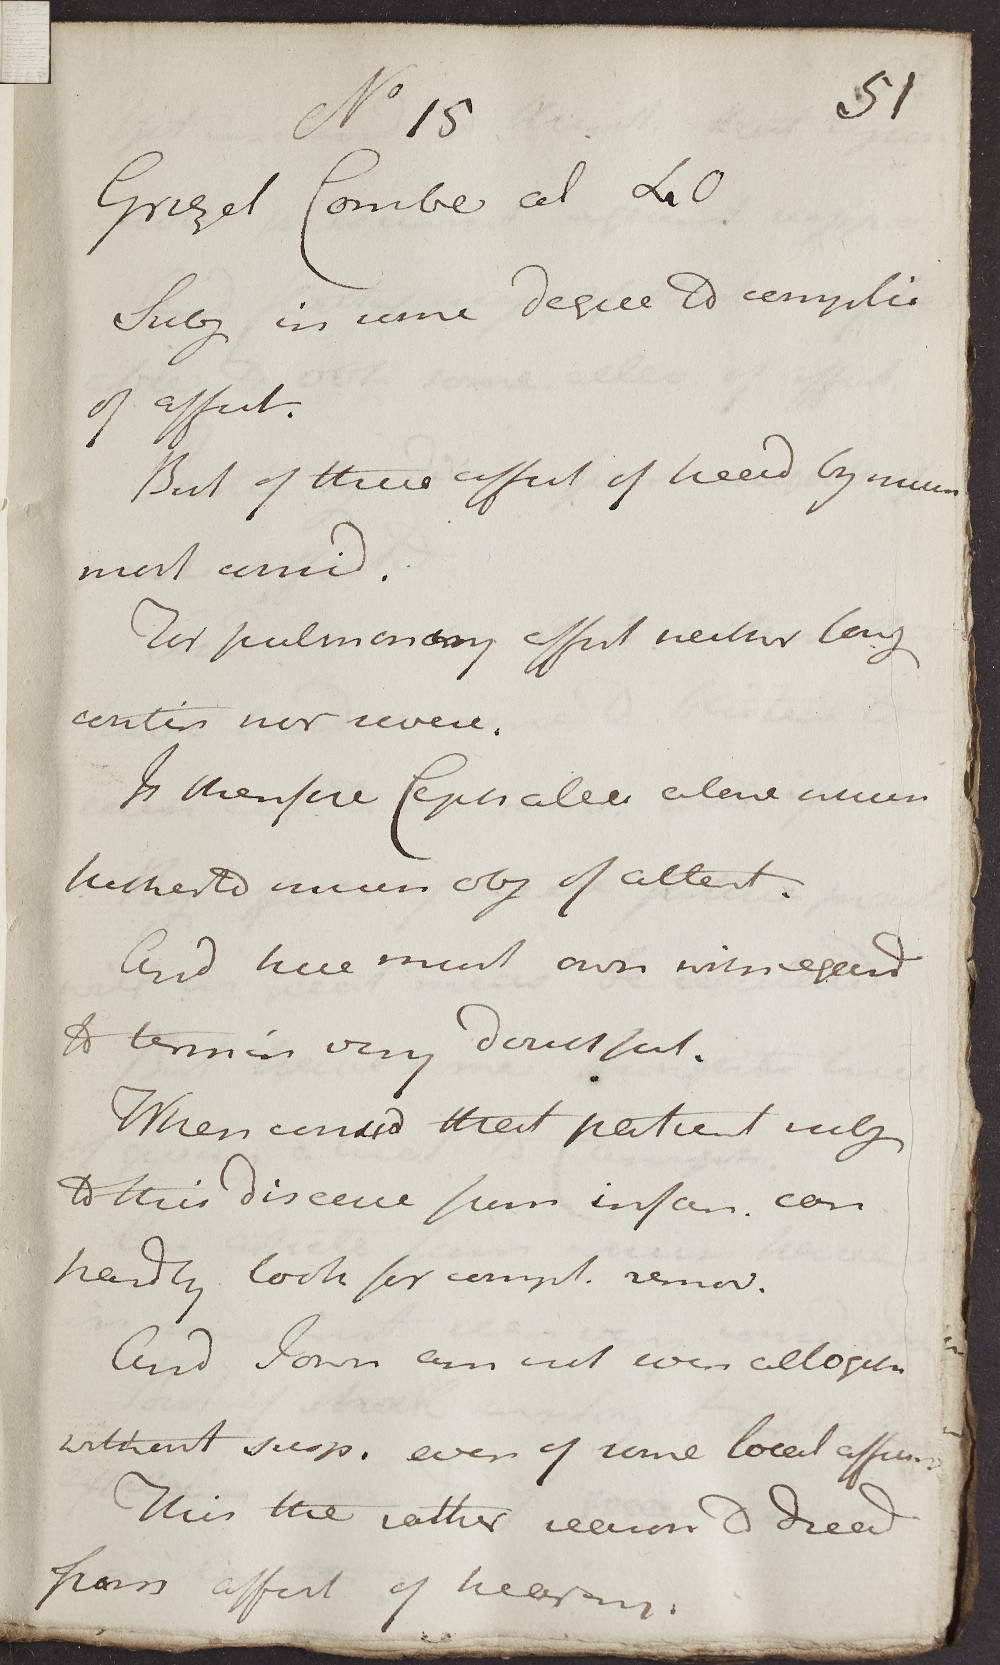 No 15
51
Grizel Combe æt 40
Subj in some degree to complic
of affect.
But of these affect of head by much
most consid.
For pulmonary affect neither long
contin nor severe.
Is therefore Cephalea alone
hitherto obj of attent.
And here must own with regard
to termin very doubtful.
When consid that patient subj
to this disease from infan. can
hardly look for compl. remov.
And I own am not even altogeth
without susp. even of some local affect
This the rather reason to dread
from affect of hearing.